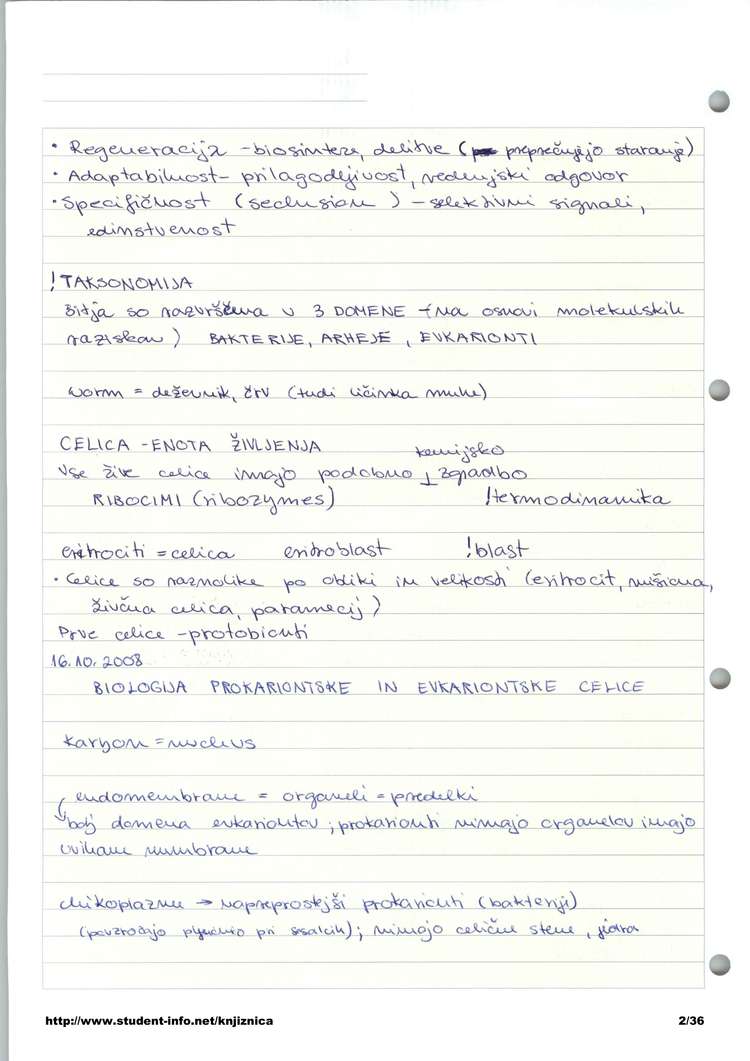 • Regeneracija - biosinteze, delitve ( preprečujejo staranje)
• Adaptabilnost - prilagodljivost, vedenjski odgovor
• Specifičnost (seclusion) - selektivni signali,
edinstvenost
! TAKSONOMIJA
Bitja so razvrščena v 3 DOMENE (na osnovi molekulskih
raziskav) BAKTERIJE, ARHEJE, EVKARIONTI
worm = deževnik, črv (tudi ličinka muhe)
CELICA - ENOTA ŽIVLJENJA
kemijsko
Vse žive celice imajo podobno ⊥ zgradbo
RIBOCIMI (ribozymes) !termodinamika
eritrociti = celica eritroblast !blast
• Celice so raznolike po obliki in velikosti (eritrocit, mišična,
živčna celica, paramecij)
Prve celice - protobionti
16.10.2008
BIOLOGIJA PROKARIONTSKE IN EVKARIONTSKE CELICE
karyon = nucleus
endomembrane = organeli = predelki
bolj domena evkariontov; prokarionti nimajo organelov imajo
uvihane membrane
mikoplazme → najpreprostejši prokarionti (bakteriji)
(povzročajo pljučnico pri sesalcih); nimajo celične stene, jedra
http://www.student-info.net/knjiznica 2/36